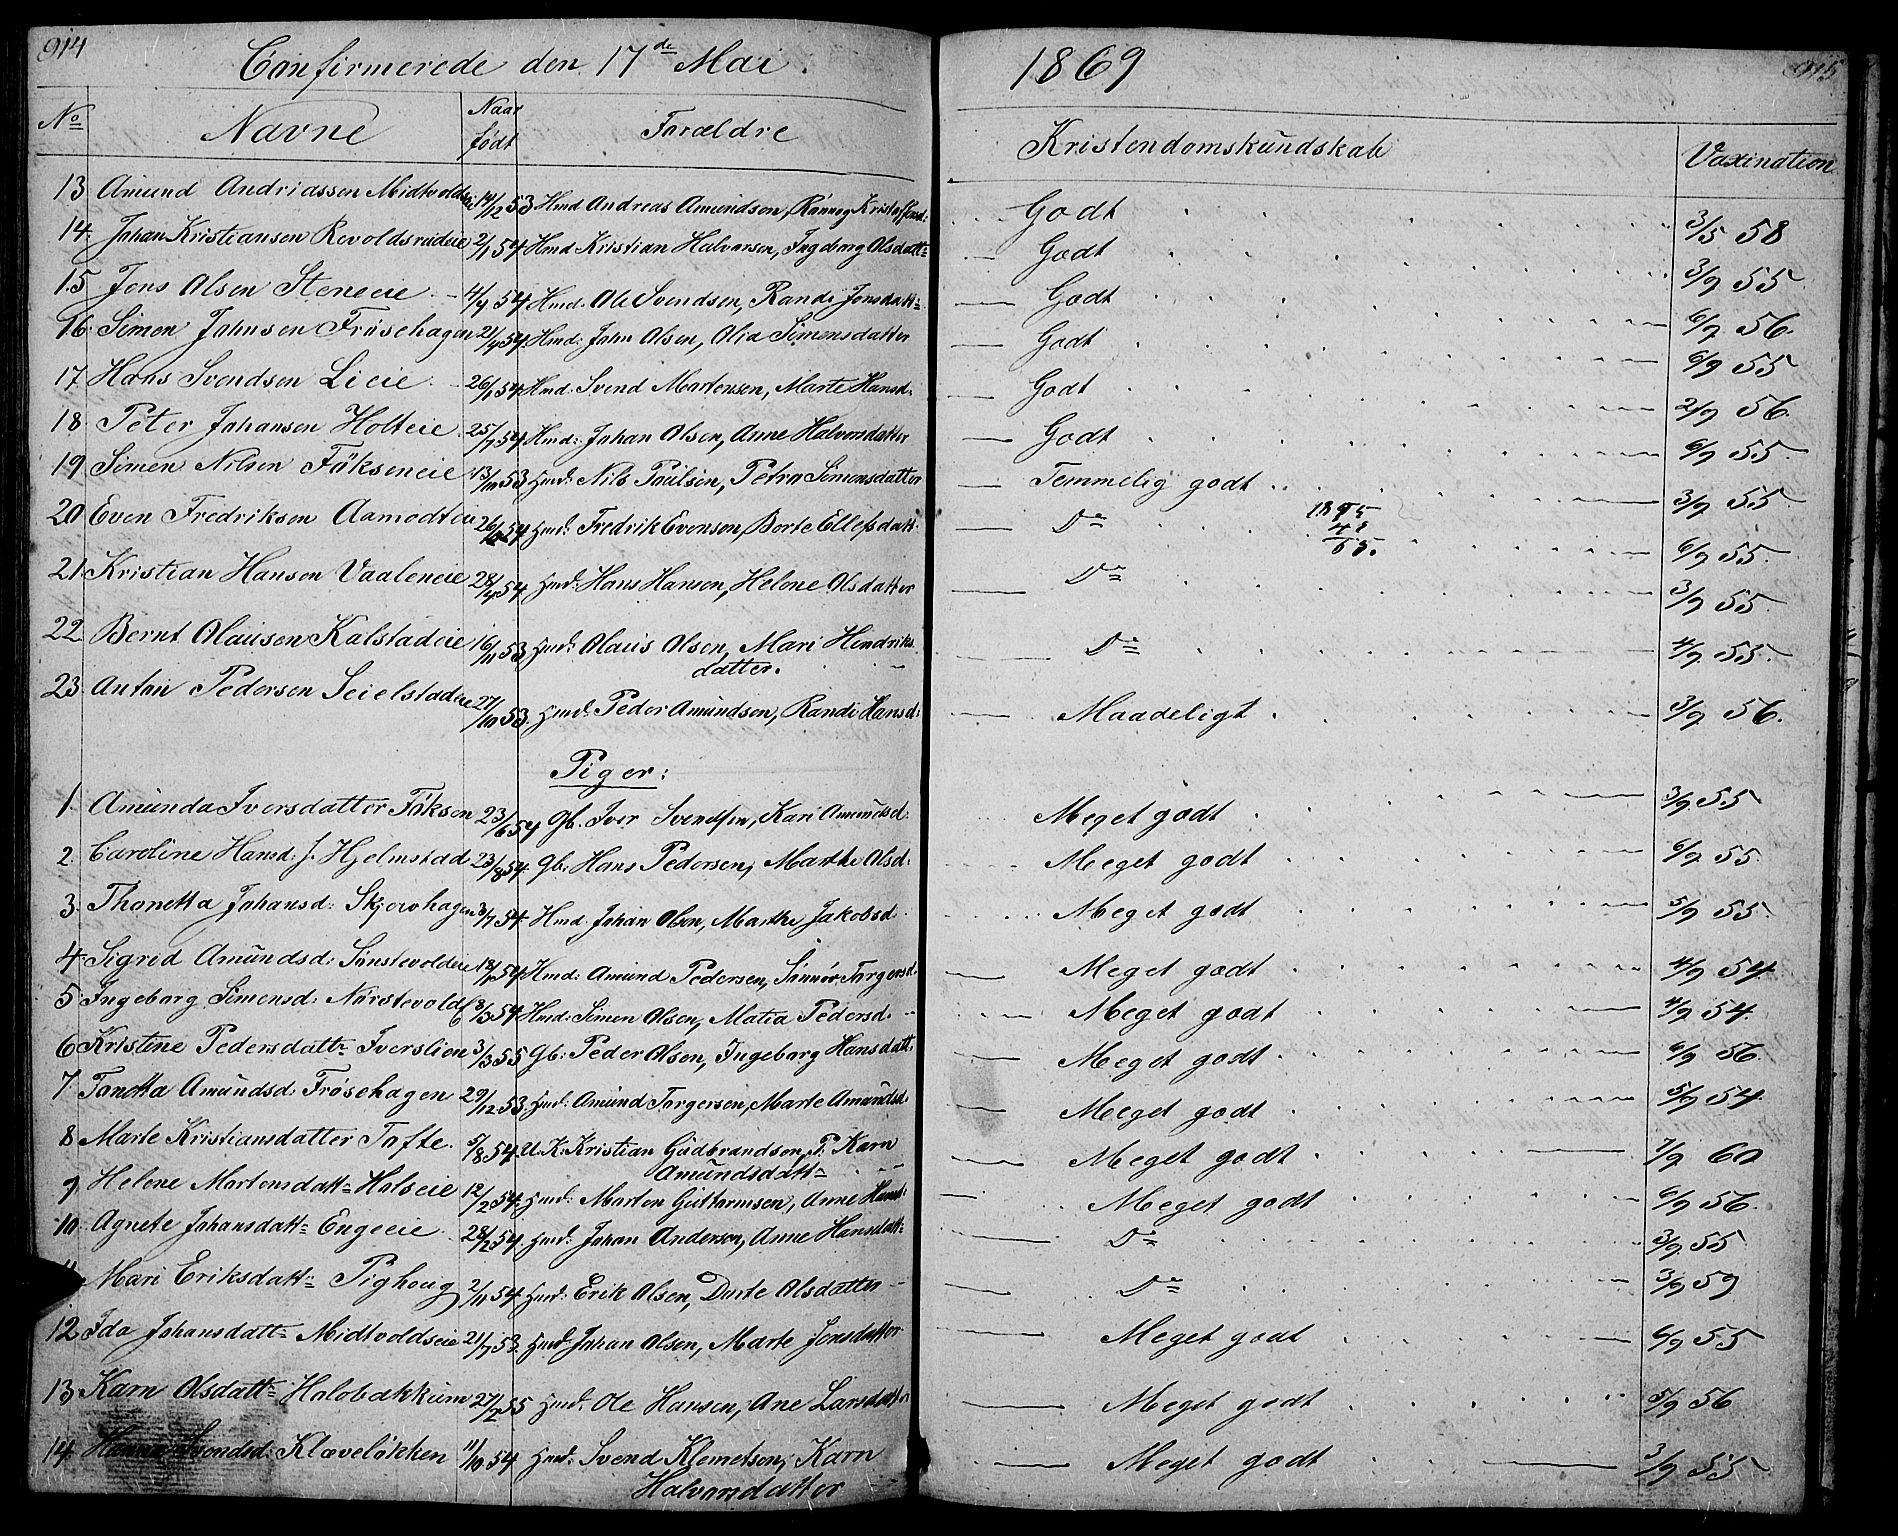 914
Confirmerede den 17de Mai.
1869
915
No Navne Naar født Forældre Kristendomskundskab Vaxination
13 Amund Andriassen Midtvoldseie 14/12 53 Hmd Andreas Amundsen, Rønnog Kristoffersd: Godt 3/5 58
14. Johan Kristiansen Revoldsrudeie 2/1 54 Hmd Kristian Halvorsen, Ingeborg Olsdatt= Godt 3/9 55
15 Jens Olsen Steneeie 4/4 54 Hmd: Ole Svendsen, Randi Jonsdatt= Godt 6/9 56.
16. Simen Johnsen Frøsehagen 21/4 54 Hmd: John Olsen, Olia Simensdatter Godt 6/9 55
17 Hans Svendsen Lieie 26/1 54 Hmd: Svend Martensen, Marte Hansd: Godt 2/9 56.
18 Peter Johansen Holteie 25/7 54 Hmd: Johan Olsen, Anne Halvorsdatter Godt 6/9 55
19 Simen Nilsen Føkseneie 13/10 53 Hmd: Nils Poulsen, Petra Simensdatter Temmelig godt 3/9 55
20 Even Fredriksen Aamodteie 54 Hmd: Fredrik Evensen, Borte Ellefsdatt: Do 6/9 55.
21. Kristian Hansen Vaaleneie 28/4 54 Hmd: Hans Hansen, Helene Olsdatter Do 3/9 55.
22. Bernt Olausen Kalstadeie 16/11 53 Hmd: Olaus Olsen, Mari Hendriks
datter. Do 4/9 55.
23. Anton Pedersen Seielstadeie 27/10 53. Hmd: Peder Amundsen, Randi Hansd: Maadeligt 3/9 56.
Piger:
1. Amunda Iversdatter Føksen 23/6 54 Gb. Iver Svendsen, Kari Amundsd: Meget godt 3/9 55
2. Caroline Hansd: f. Hjelmstad 23/8 54. Gb: Hans Pedersen, Marthe Olsd: Meget godt 6/9 55.
3. Thonetta Johansd: Skjørvhagen 3/7 54. Hmd: Johan Olsen, Marthe Jakobsd Meget godt 5/9 55.
4 Sigrid Amundsd: Sønstevoldeie 54 Hmd: Amund Pedersen, Sønnøv Torgersd. Meget godt 4/9 54
5 Ingeborg Simensd: Nørstevolds 8/3 54 Hmd: Simen Olsen, Matea Pedersd. Meget godt 4/9 54.
6 Kristine Pedersdatt= Iverslien 3/3 55 Gb: Peder Olsen, Ingeborg Hansdatt. Meget godt 6/9 56.
7 Tonetta Amundsd: Frøsehagen 29/12 53 Hmd: Amund Torgersen, Marte Amundsd. Meget godt 5/9 54.
8 Marte Kristiansdatter Tofte. 5/8 54 U.K. Kristian Gudbrandsen, P. Karn
Amundsdatt= Meget godt 7/9 60
9 Helene Martensdatt= Halseie 12/2 54 Hmd: Marten Guttormsen, Anne Hansd: Meget godt 6/9 56.
10. Agnete Johansdatt= Engeeie 28/2 54. Hmd: Johan Andersen, Anne Hansdatt= Do 3/9 55
Mari Eriksdatt= Pighoug 2/11 54 Hmd: Erik Olsen, Dorte Olsdatter Do 3/9 59
12. Ida Johansdatt= Midtvoldseie 21/7 53 Hmd: Johan Olsen, Marte Jonsdatter Meget godt 6/9 55
13. Karn Olsdatt= Halobakkum 27/2 55 Hmd. Ole Hansen, Ane Larsdatter Meget godt 5/9 56
14. Svendsd. Klæveløkken 11/10 54 Hmd: Svend Klemetsen, Karn
Halvorsdatter Meget godt 3/9 55